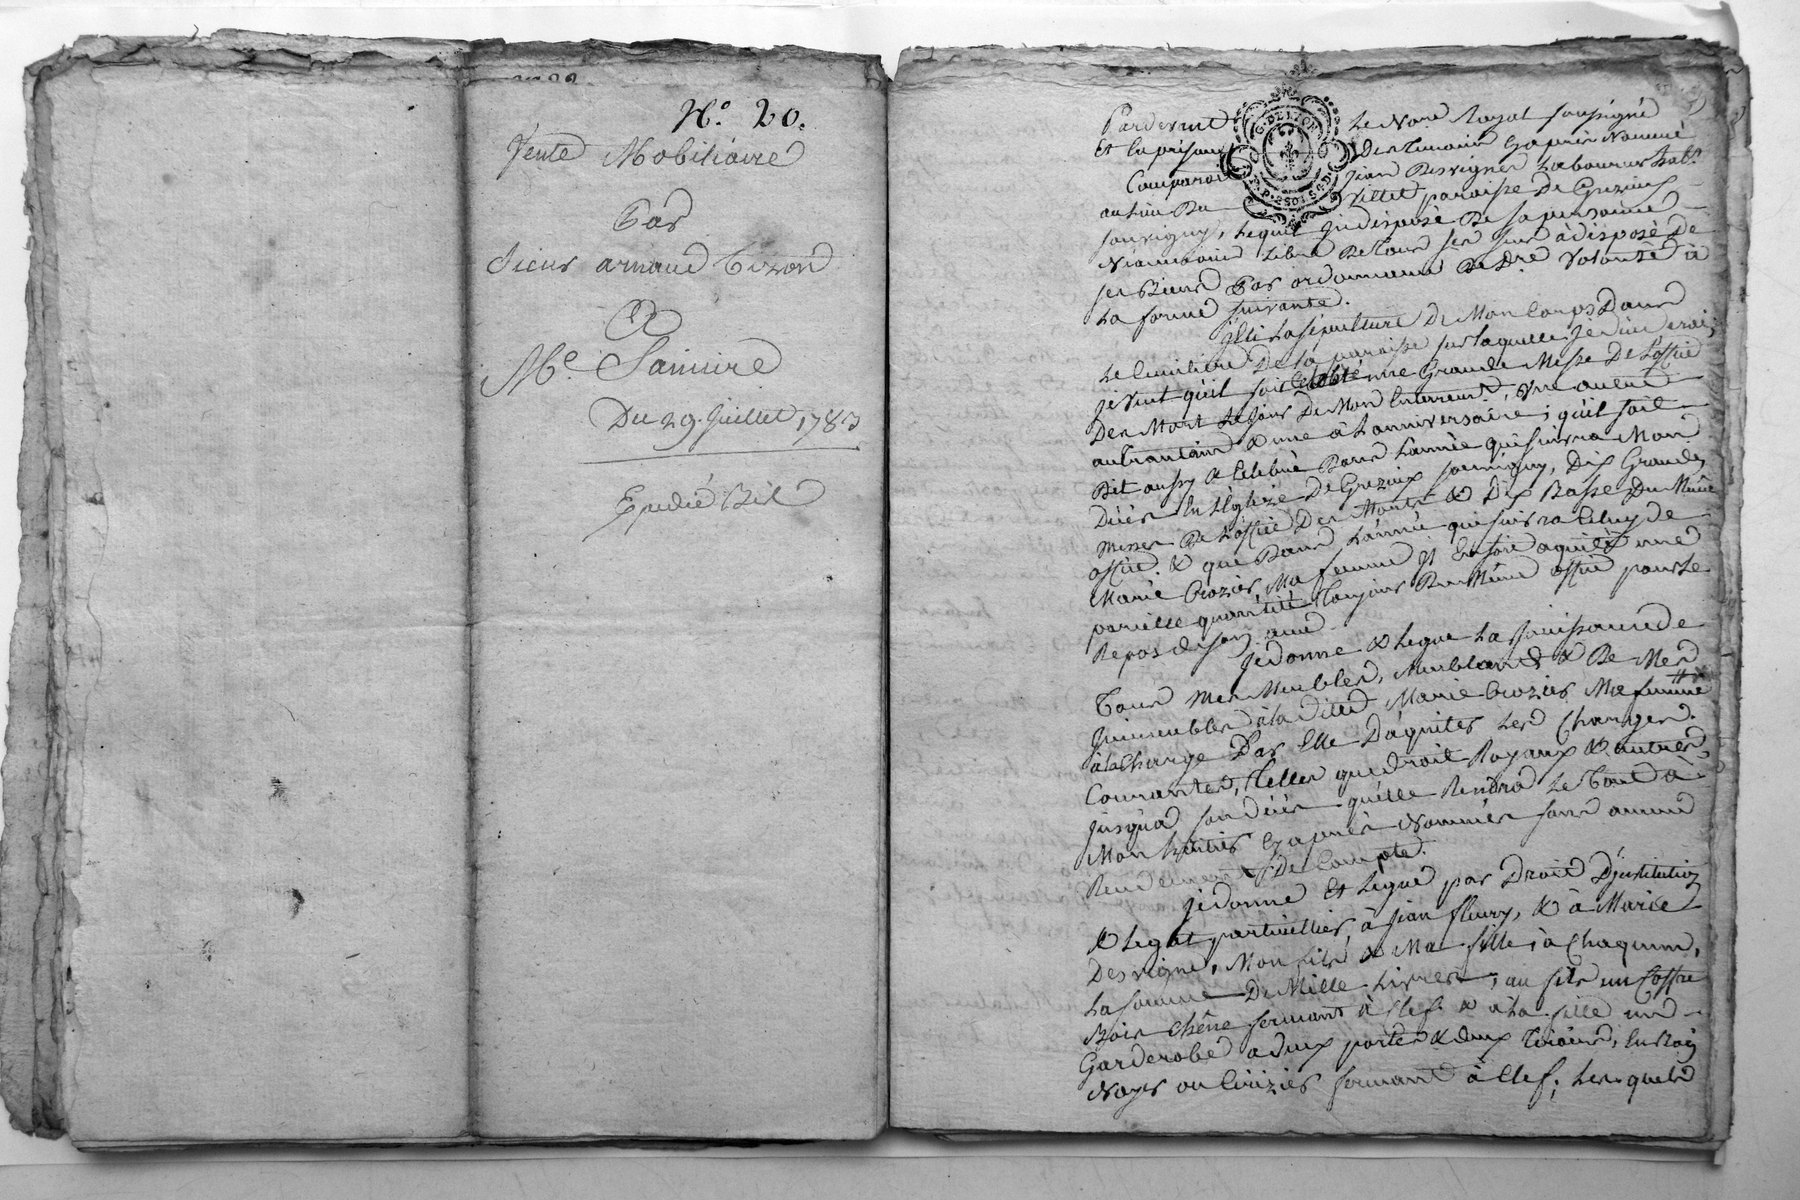 N.o 20.
Vente Mobiliaire
Par
Sieur arnaud
A
Me.
Du 29. Juillet, 1783
Expedié
Pardevant Le No.re Royal soussigné
Et En présance Des Témoins Cy après Nommés
Comparoit Jean Desvignes Laboureur hab.t
au Lieu Du Villet paroisse De Grezieux
souvigny, Lequel Indisposé De sa personne
Néanmoins Libre De tous ses sens à disposé De
ses Biens Par ordonnance De D.re Volonté à
La forme suivante.
J'Elis La sépulture De Mon Corps Dans
Le Cimitiere De La paroisse sur laquelle Je décéderai,
Je Veut qu'il soit Célébré une Grande Messe De L'office
Des Mort Le Jour De Mon Enterrem.t, Une autre
au trantain & une à L'anniversaire; qu'il soit
Dit aussy & Célébré Dans L'année qui suivra Mon
Décès En L'Eglize De Grezieux souvigny, Dix Grandes
Messes De L'office Des Morts & Dix Basse Du Même
office. & que Dans L'année qui suivra Celuy de
Marie Crozier Ma femme Il En soit aquité une
pareille quantité Toujours Du Même office pour Le
Repos de son ame
Je donne & Legue La Jouissance de
Tous Mes Meubles, Meublans & De Mes
Immeubles à la ditte Marie Crozier Ma femme
à la Charge Par Elle D'aquiter Les Charges
Courantes, Telles que Droit Royaux & autres
Jusqu'à son décès qu'elle Rendra Le Tout à
Mon héritier Cy après Nommés sans aucune
Rendement De Compte.
Je donne Et Lègue par Droit D'institution
& Legat particullier, à Jean fleury, & à Marie
Desvigne, Mon fils & Ma fille, à Chaqu'un,
La somme De Mille Livres, au fils un Coffre
Bois Chêne fermant à Clef & à La fille une
Garderobe à deux portes & deux Tiroirs, En Bois
Noyer ou Cerizier fermant à Clef, Lesquels